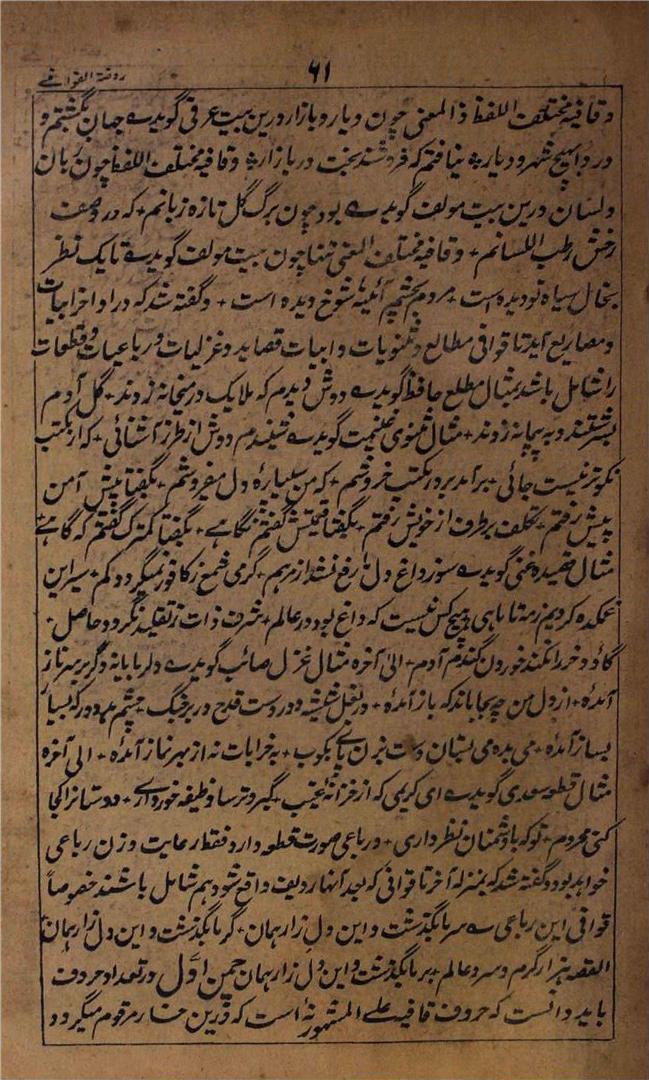 ۶۱ روضة القوافی
وقافیه مختلف اللفظ ذالمعنی چون دیار و بازار درین بیت عرفی گوید جهان بگشتم و
درداهیچ شهر و دیار * نیافتم که فروشند بخت در بازار * وقافیه مختلف اللفظ چون زبان
ولسان درین بیت مولف گوید بود چون برگ گل تازه زبانم * که در وصف
رخش رطب اللسانم * وقافیه مختلف المعنی تنها چون بیت مولف گوید تا یک نظر
بخال سیاه تو دیده است * مردم بچشم آئینه شوخ دیده است * وگفته شد که در اواخر ابیات
ومصاریع آید تا قوافی مطالع و مثنویات و ابیات قصاید و غزلیات و رباعیات و قطعات
را شامل باشد مثال مطلع حافظ گوید دوش دیدم که ملایک در میخانه زدند * گل آدم
بسرشتند و به پیمانه زدند * مثال مثنوی غنیمت گوید شنیدم دوش از طرز آشنائی * که از مکتب
نکوتر نیست جائی * برآمد بر در مکتب خروشم * که من سیپارهٔ دل میفروشم * بگفتا پیش آ من
پیش رفتم * تکلف برطرف از خویش رفتم * بگفتا قیمتش گفتم نگاهے * بگفتا کمترک گفتم که گاهے
مثال قصیده غنی گوید سوز داغ دل ما رفع نشد از مرهم * گرمی شمع ز کافور نمیگردد کم * سیر این
غمکده کردیم ز مه تا ماهی هیچ کس نیست که داغ بود در عالم * شرف ذات ز تقلید نگردد حاصل *
گاو و خر را نکند خوردن گندم آدم * الی آخره مثال غزل صائب گوید دلربایانه دگر بر سر ناز
آمدهٔ * از دل من چه بجا مانده که باز آمدهٔ * در بغل شیشه و در دست قدح در بر چنگ * چشم بد دور که بسیار
بساز آمدهٔ * می بده می بستان دست بزن پای بکوب * به خرابات نه از بهر نماز آمدهٔ * الی آخره
مثال قطعه سعدی گوید ای کریمی که از خزانهٔ غیب * گبر و ترسا وظیفه خور داری * دوستانرا کجا
کنی محروم * تو که با دشمنان نظر داری * و رباعی صورت قطعه دارد فقط رعایت وزن رباعی
خواهد بود و گفته شد که بمنزله آخر تا قوافی که بعد آنها ردیف واقع شود هم شامل باشند خصوصاً
قوافی این رباعی سرما بگذشت و این دل زار همان * گرما بگذشت و این دل زار همان
القصه هزار گرم و سرد عالم * بر ما بگذشت و این دل زار همان چمن اوّل در تعداد حروف
باید دانست که حروف قافیه علے المشهور نه است که درین مرقوم میگردد